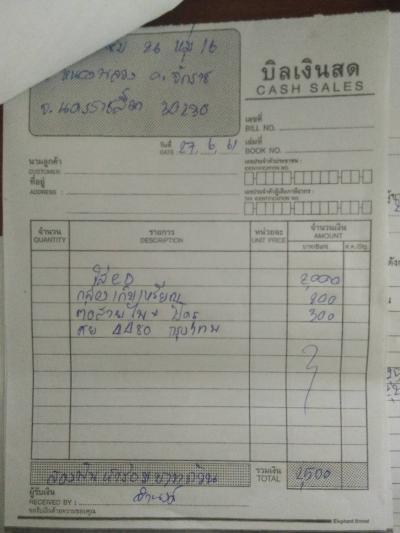 26 หมู่ 16
อ.จักราช
จ.นครราชสีมา 30230
บิลเงินสด
CASH SALES
เลขที่
BILL NO.
วันที่
DATE 27 6 61
เล่มที่
BOOK NO.
นามลูกค้า
CUSTOMER
เลขประจำตัวประชาชน :
IDENTIFICATION NO.
ที่อยู่
ADDRESS :
เลขประจำตัวผู้เสียภาษีอากร :
TAX IDENTIFICATION NO.
จำนวน รายการ หน่วยละ จำนวนเงิน
QUANTITY DESCRIPTION UNIT PRICE AMOUNT
บาท/Baht ส.ต./Stg.
2,000
กล่องเก็บเหรียญ 200
300
4480 กรุงเทพ
รวมเงิน
TOTAL 2,500
ผู้รับเงิน
RECEIVED BY :
ขอรับเงินด้วยความขอบคุณ
Elephant Brand